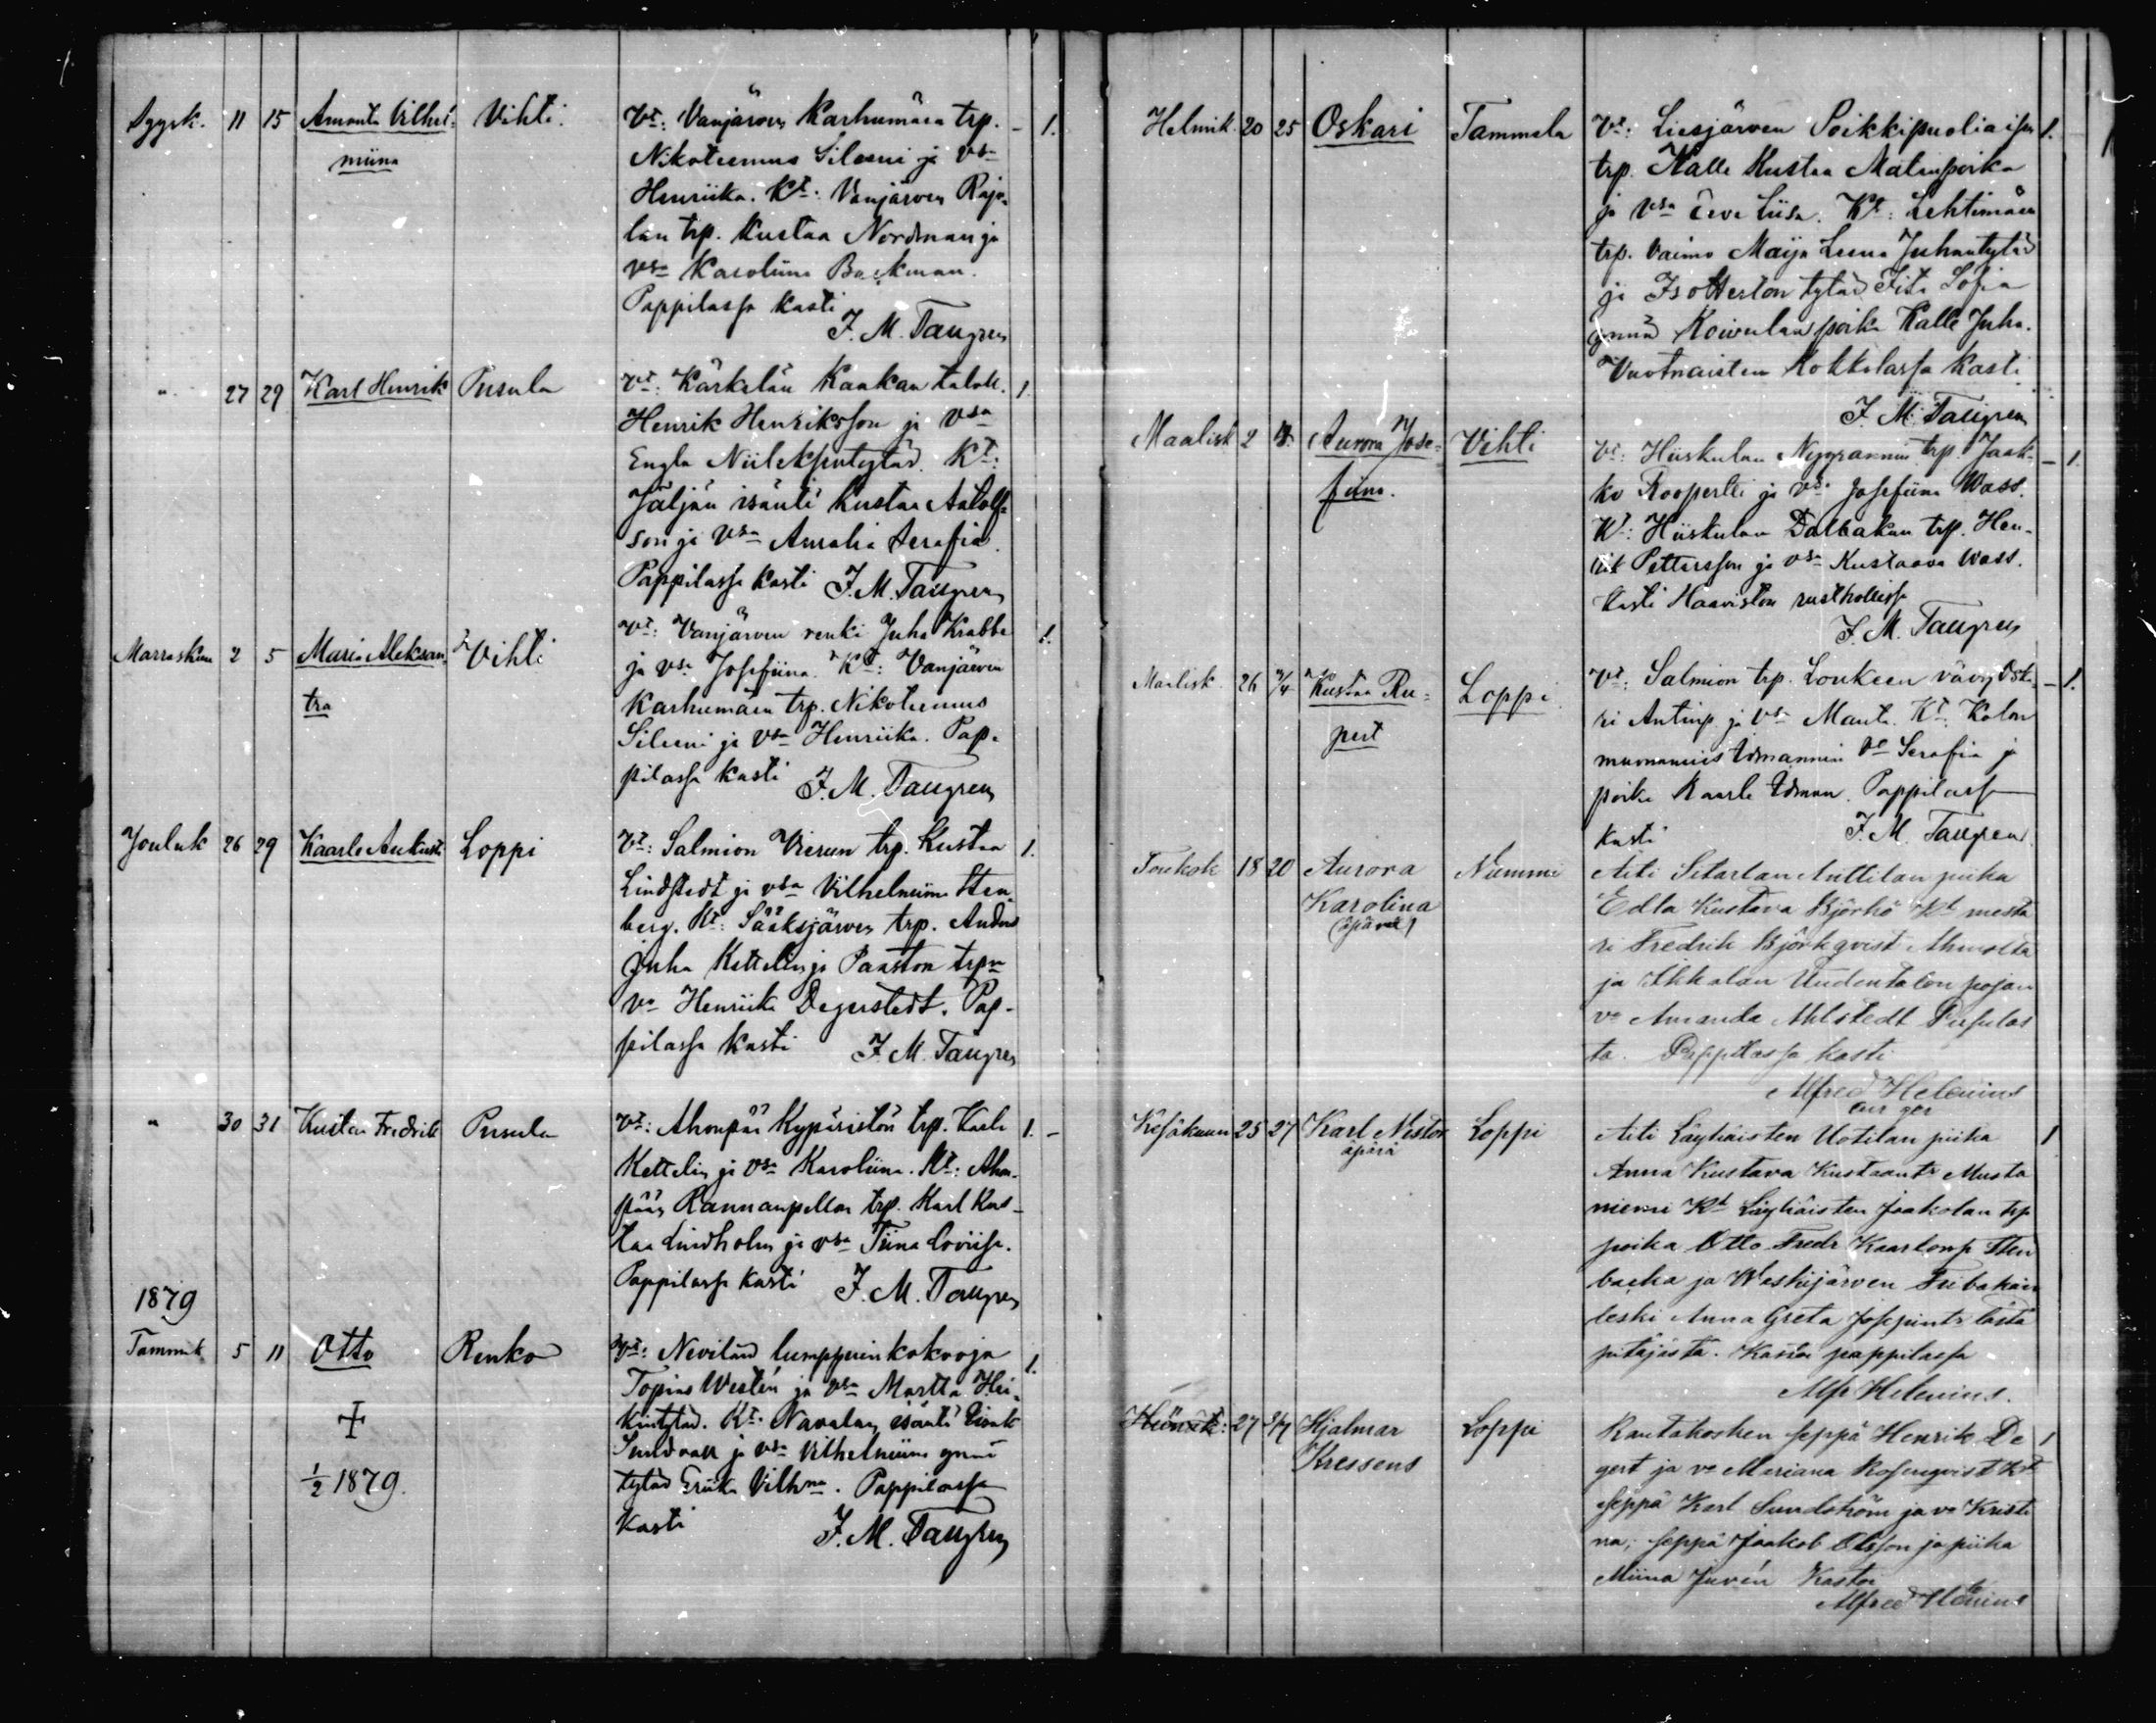 Syysk. 11 15 Amanta Vilhel- Vihti. Vt: Vanjärven Karhumäen trp. - 1.
miina Nikoteemus Sileeni ja vsa
Henriika. Kt: Vanjärven Raja-
lan trp. Kustaa Nordman ja
vsa Karoliina Backman.
Pappilassa kasti
F. M. Taugren
" 27 29 Karl Henrik Pusula Vt: Kärkälän Kaakan talok. 1.
Henrik Henriksson ja vsa
Engla Niileksentytär. Kt:
Jäljän isäntä Kustaa Adolfs-
son ja vsa Amalia Serafia.
Pappilassa kasti F. M. Taugren
Marraskuu 2 5 Maria Aleksan- Vihti Vt: Vanjärven renki Juha Krabbe 1.
tra ja vsa Josefiina. Kt: Vanjärven
Karhumäen trp. Nikoteemus
Sileeni ja vsa Henriika. Pap-
pilassa kasti F. M. Taugren
Jouluk 26 29 Kaarlo Aukusti Loppi Vt: Salmion Vierun trp. Kustaa 1.
Lindstedt ja vsa Vilhelmiina Sten-
berg. Kt: Sääksjärven trp. Anders
Juha Kettelin ja Paaston trpn
va Henriika Degerstedt. Pap-
pilassa kasti F. M. Taugren
" 30 31 Kustaa Fredrik Pusula Vt: Ahonpää Kypäristön trp. Kaarle 1. -
Kettelin ja vsa Karoliina. Kt: Ahon-
pään Rannanpellon trp. Karl Kus-
taa Lindholm ja vsa Tiina Loviisa.
Pappilassa kasti F. M. Taugren
1879
Tammik 5 11 Otto Renko Vt: Nevilän lumppuinkokooja 1.
Topias Westén ja vsa Martta Hei-
kintytär. Kt: Navalan isäntä
Sundvall ja vsa Vilhelmiina ynnä
1/2 1879. tytär Eriika Vilhna. Pappilassa
kasti F. M. Taugren
Helmik 20 25 Oskari Tammela Vt: Liesjärven 1.
trp. Kalle Kustaa Matinpoika
ja vsa Eeva Liisa. Kt: Lehtimäen
trp. vaimo Maija Leena Juhantytär
ja tytär Sofia
ynnä Koivulan poika Kalle Juha.
Vuotnaisten Kokkolassa kasti
F. M. Taugren
Maalisk 2 Aurora Jose- Vihti Vt: Hiiskulan Nygrannin trp. Jaak- - 1.
fiina. ko Roopertti ja vsa Josefiina Wass.
Kt: Hiiskulan Dalbakan trp. Hen-
rik Pettersson ja vsa Kustaava Wass.
kasti Haaviston rusthollissa
F. M. Taugren
Maalisk. 26 Kustaa Ru- Loppi Vt: Salmion trp. Loukeen vävy Oska- - 1.
pert ri Antinp. ja vsa Manta. Kt:
va Serafia ja
poika Kaarle Edman. Pappilassa
kasti F. M. Taugren
Toukok 18 20 Aurora Nummi Äiti Sitarlan Anttilan piika
Karolina Edla Kustava Björkö Kt mesta
(äpärä) ri Fredrik Björkqvist
ja Ikkalan Uudentalon pojan
va Amanda Ahlstedt Pusulas
ta. Pappilassa kasti
Alfred Helenius
Kesäkuun 25 27 Karl Nestor Loppi Äiti Läyliäisten Uotilan piika 1
äpärä Anna Kustava Kustaant. Musta
niemi Kt Läyliäisten Jaakolan trp
poika Otto Fredr Kaarlonp Sten
backa ja Weskijärven Fribakan
leski Anna Greta Josepint. tästä
pitäjästä. Kastoi pappilassa
Alfr Helenius.
27 3/7 Hjalmar Loppi Rautakosken seppä Henrik De 1
Kressens gert ja va Mariana Rosenqvist Kt
seppä Karl Sundström ja va Kristi
na, seppä Jaakob Olsson ja piika
Miina Juvén Kastoi
Alfred Helenius